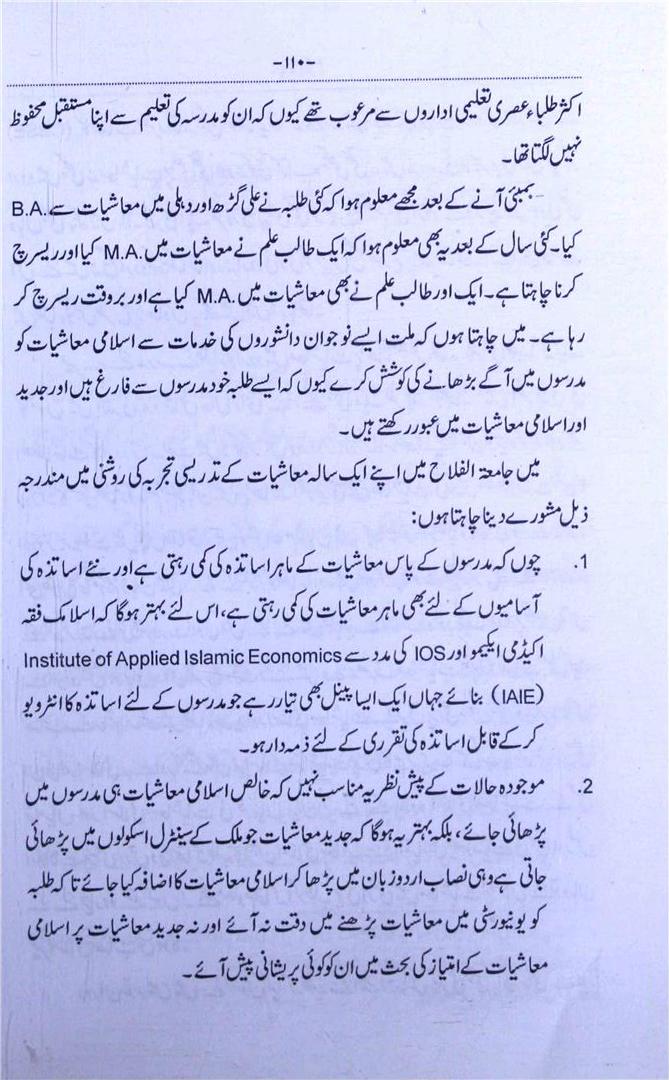 -۱۱۰-
اکثر طلباء عصری تعلیمی اداروں سے مرعوب تھے کیوں کہ ان کو مدرسہ کی تعلیم سے اپنا مستقبل محفوظ
نہیں لگتا تھا۔
بمبئی آنے کے بعد مجھے معلوم ہوا کہ کئی طلبہ نے علی گڑھ اور دہلی میں معاشیات سے B.A.
کیا۔ کئی سال کے بعد یہ بھی معلوم ہوا کہ ایک طالب علم نے معاشیات میں M.A. کیا اور ریسرچ
کرنا چاہتا ہے۔ ایک اور طالب علم نے بھی معاشیات میں M.A. کیا ہے اور بروقت ریسرچ کر
رہا ہے۔ میں چاہتا ہوں کہ ملت ایسے نوجوان دانشوروں کی خدمات سے اسلامی معاشیات کو
مدرسوں میں آگے بڑھانے کی کوشش کرے کیوں کہ ایسے طلبہ خود مدرسوں سے فارغ ہیں اور جدید
اور اسلامی معاشیات میں عبور رکھتے ہیں۔
میں جامعۃ الفلاح میں اپنے ایک سالہ معاشیات کے تدریسی تجربہ کی روشنی میں مندرجہ
ذیل مشورے دینا چاہتا ہوں:
1. چوں کہ مدرسوں کے پاس معاشیات کے ماہر اساتذہ کی کمی رہتی ہے اور نئے اساتذہ کی
آسامیوں کے لئے بھی ماہر معاشیات کی کمی رہتی ہے، اس لئے بہتر ہوگا کہ اسلامک فقہ
اکیڈمی ایکیمو اور IOS کی مدد سے Institute of Applied Islamic Economics
(IAIE) بنائے جہاں ایک ایسا پینل بھی تیار رہے جو مدرسوں کے لئے اساتذہ کا انٹرویو
کر کے قابل اساتذہ کی تقرری کے لئے ذمہ دار ہو۔
2. موجودہ حالات کے پیش نظر یہ مناسب نہیں کہ خالص اسلامی معاشیات ہی مدرسوں میں
پڑھائی جائے، بلکہ بہتر یہ ہوگا کہ جدید معاشیات جو ملک کے سینٹرل اسکولوں میں پڑھائی
جاتی ہے وہی نصاب اردو زبان میں پڑھا کر اسلامی معاشیات کا اضافہ کیا جائے تاکہ طلبہ
کو یونیورسٹی میں معاشیات پڑھنے میں دقت نہ آئے اور نہ جدید معاشیات پر اسلامی
معاشیات کے امتیاز کی بحث میں ان کو کوئی پریشانی پیش آئے۔